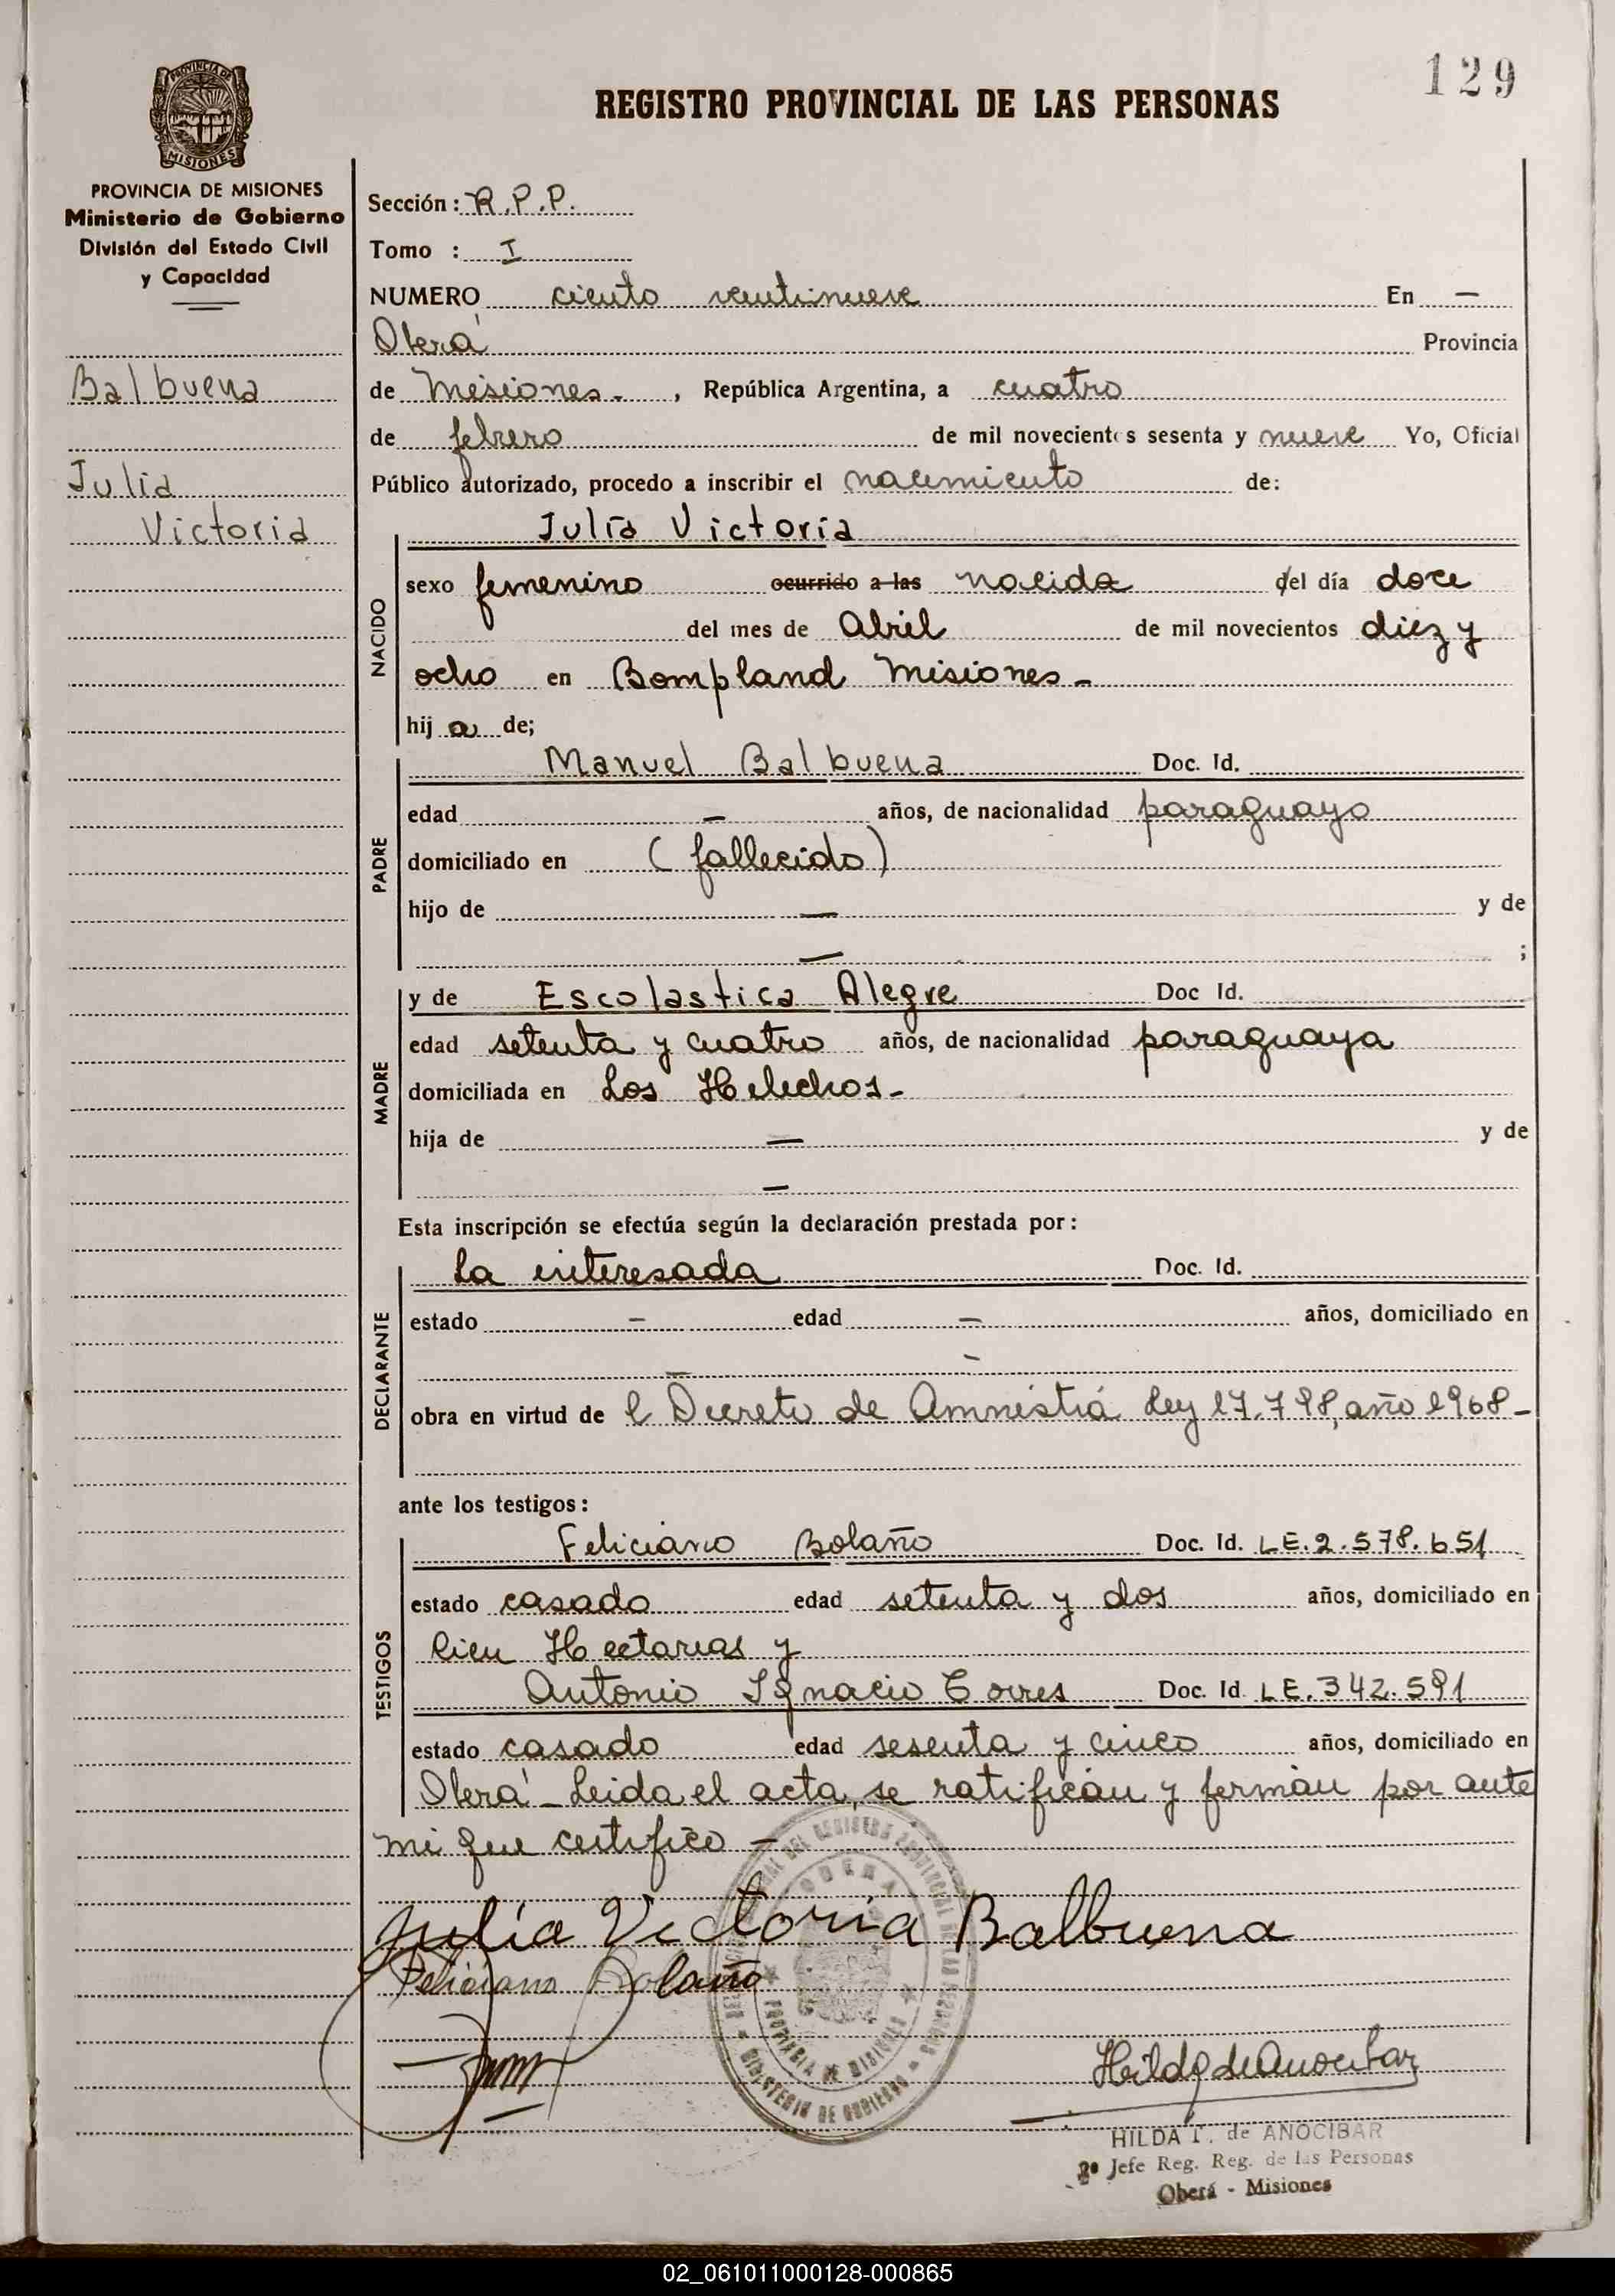 129
REGISTRO PROVINCIAL DE LAS PERSONAS
PROVINCIA DE
MISIONES
PROVINCIA DE MISIONES
Ministerio de Gobierno
División del Estado Civil
y Capacidad
Balbuena
Julia
Victoria
Sección: R.P.P.
Tomo : I
NUMERO ciento veintinueve En —
Oberá Provincia
de Misiones - , República Argentina, a cuatro
de febrero de mil novecientos sesenta y nueve Yo, Oficial
Público autorizado, procedo a inscribir el nacimiento de:
NACIDO
Julia Victoria
sexo femenino ocurrido a las nacida del día doce
del mes de Abril de mil novecientos diez y
ocho en Bompland Misiones -
hij a de;
PADRE
Manuel Balbuena Doc. Id.
edad — años, de nacionalidad paraguayo
domiciliado en (fallecido)
hijo de — y de
— ;
MADRE
y de Escolastica Alegre Doc Id.
edad setenta y cuatro años, de nacionalidad paraguaya
domiciliada en Los Helechos -
hija de — y de
—
Esta inscripción se efectúa según la declaración prestada por:
DECLARANTE
La interesada Doc. Id.
estado - edad - años, domiciliado en
- -
obra en virtud de l Decreto de Amnistía Ley 17.798, año 1968 -
ante los testigos:
TESTIGOS
Feliciano Bolaño Doc. Id. LE. 2.578.651
estado casado edad setenta y dos años, domiciliado en
Cien Hectareas y
Antonio Ignacio Torres Doc. Id. LE. 342.591
estado casado edad sesenta y cinco años, domiciliado en
Oberá - Leida el acta, se ratifican y firman por ante
mi que certifico —
Julia Victoria Balbuena
Feliciano Bolaño
OBERA
PROVINCIA DE MISIONES
MINISTERIO DE GOBIERNO
Hilda de Anocibar
HILDA T. de ANOCIBAR
2º Jefe Reg. Reg. de las Personas
Oberá - Misiones
02_061011000128-000865